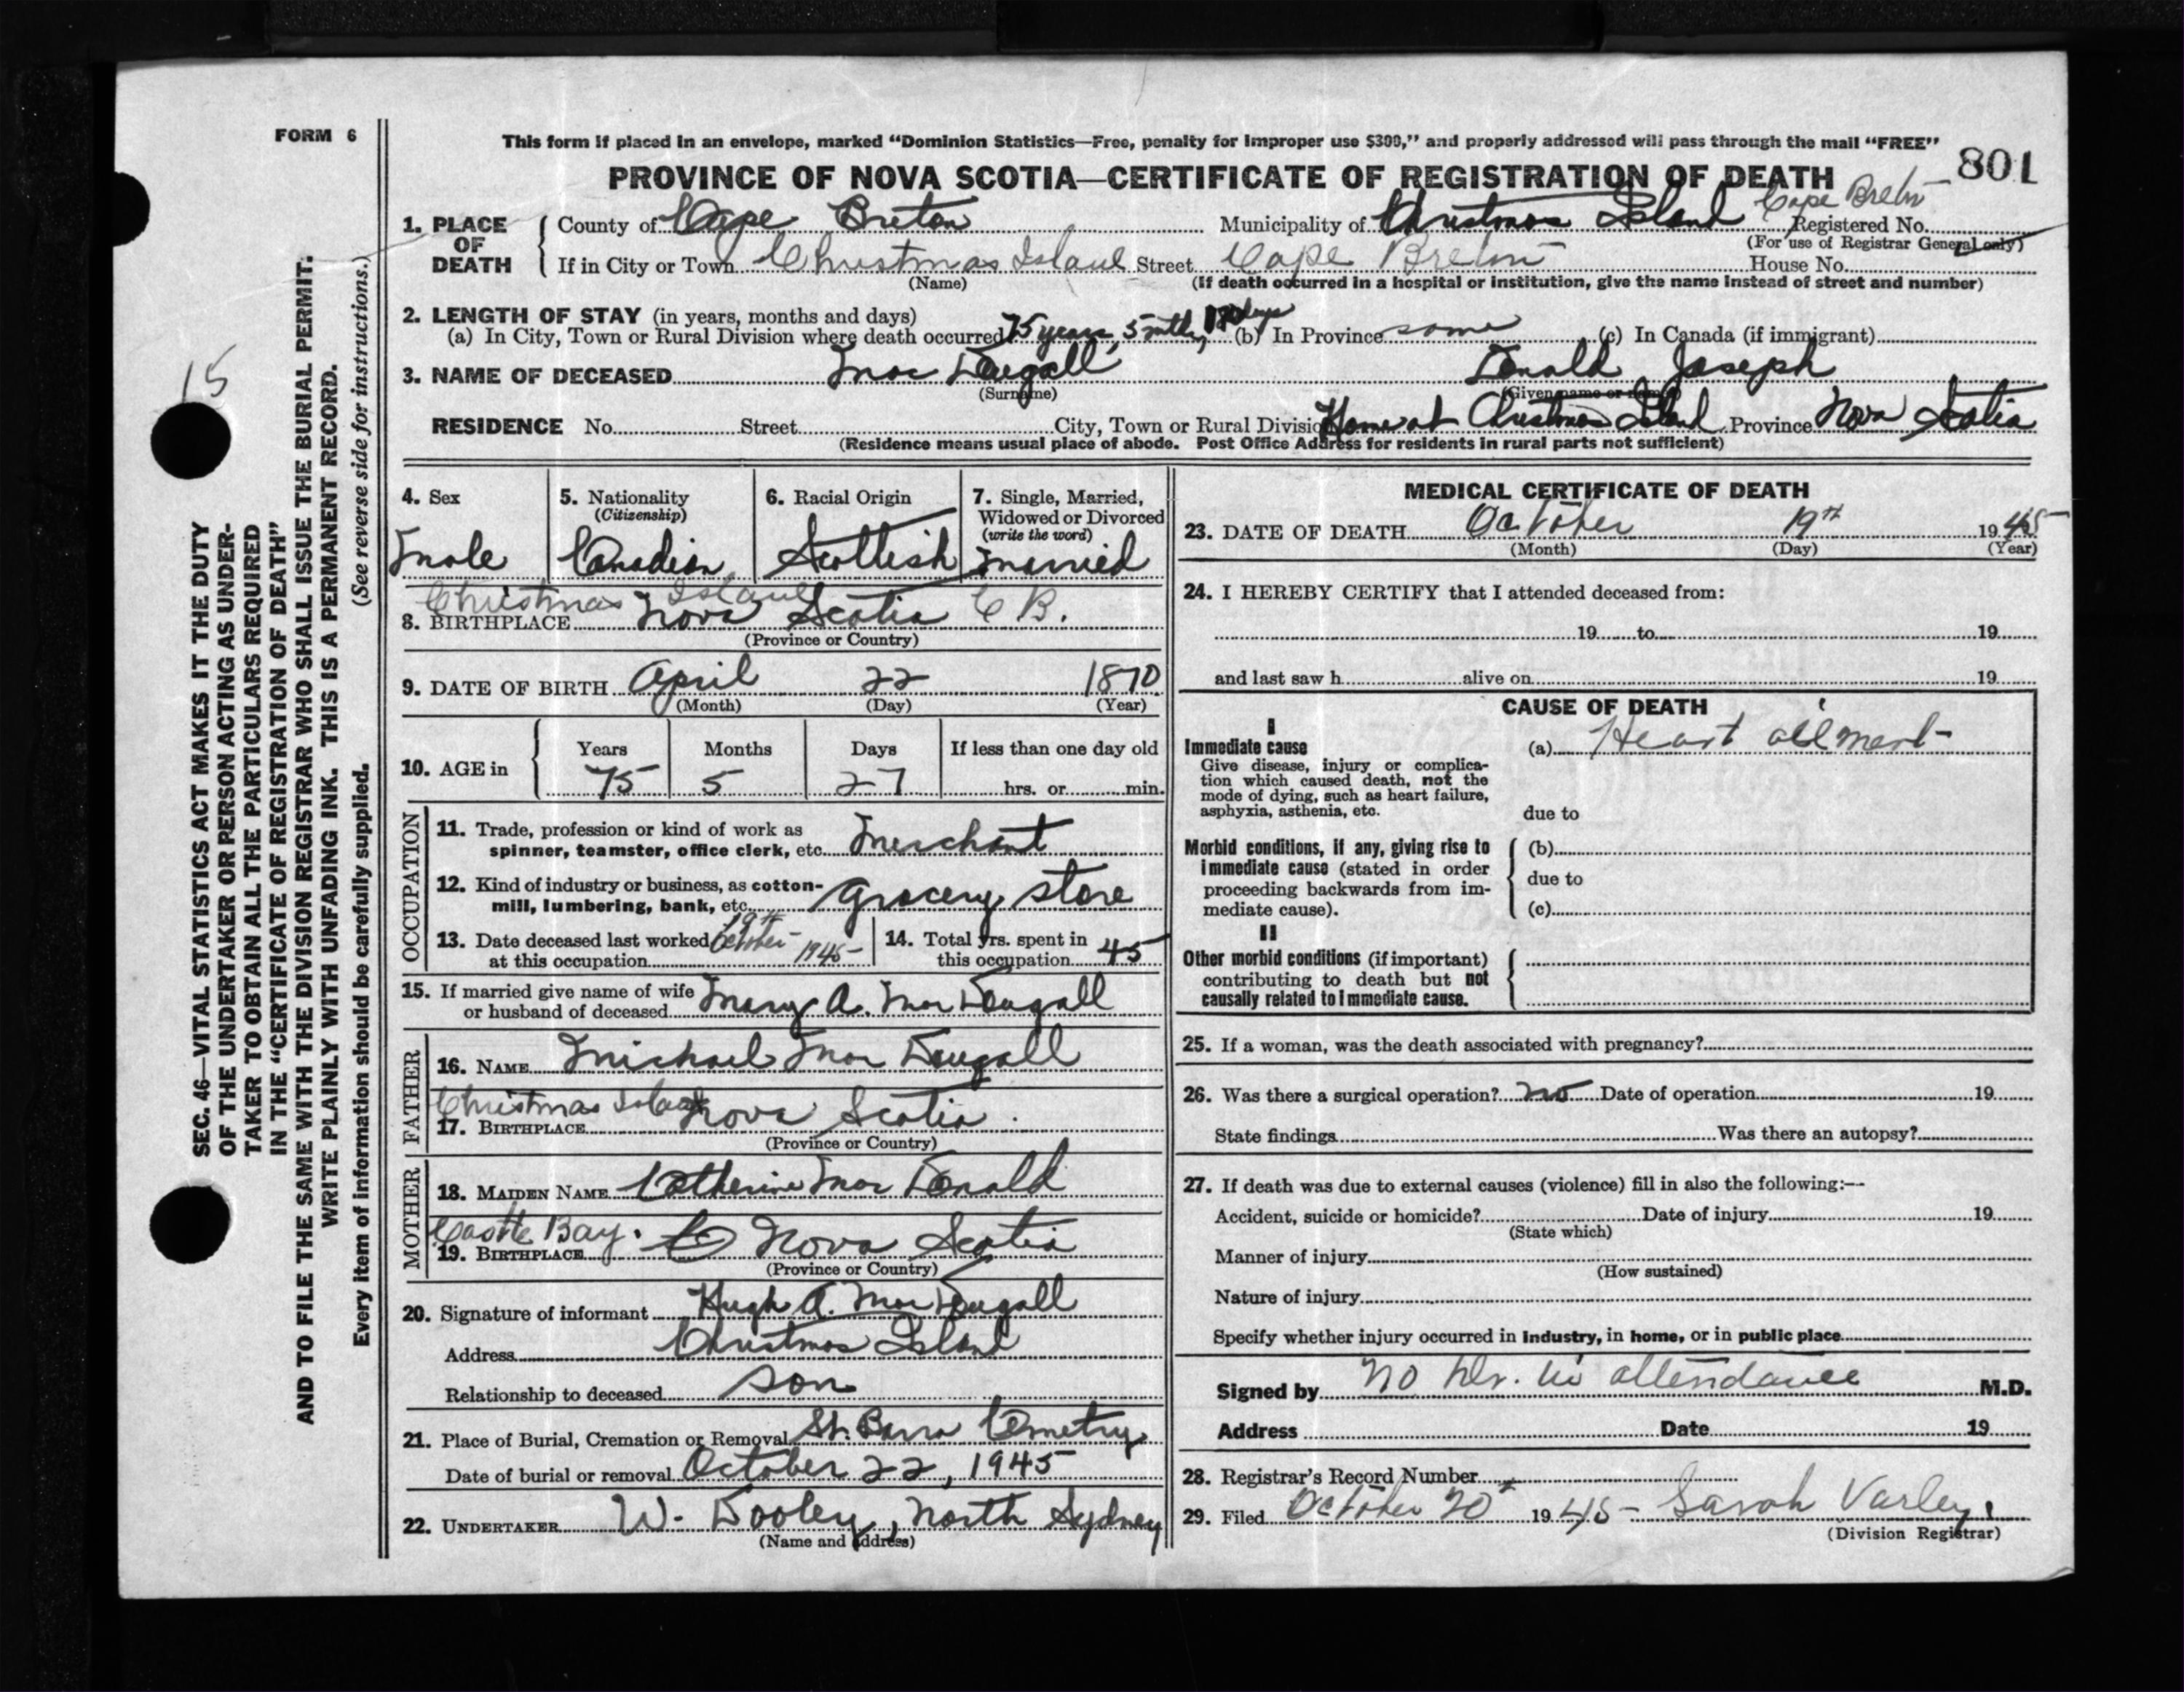 FORM 6
This form if placed in an envelope, marked “Dominion Statistics—Free, penalty for improper use $300,” and properly addressed will pass through the mail “FREE”
PROVINCE OF NOVA SCOTIA—CERTIFICATE OF REGISTRATION OF DEATH
801
1. PLACE OF DEATH
County of Cape Breton Municipality of Christmas Island Cape Breton Registered No.
(For use of Registrar General only)
If in City or Town Christmas Island Street Cape Breton House No.
(Name) (If death occurred in a hospital or institution, give the name instead of street and number)
2. LENGTH OF STAY (in years, months and days)
(a) In City, Town or Rural Division where death occurred 75 years, 5 mths, days (b) In Province same (c) In Canada (if immigrant)
3. NAME OF DECEASED Mac Dougall Donald Joseph
(Surname) (Given name or names)
RESIDENCE No. Street City, Town or Rural Division Home at Christmas Island Province Nova Scotia
(Residence means usual place of abode. Post Office Address for residents in rural parts not sufficient)
4. Sex
Male
5. Nationality
(Citizenship)
Canadian
6. Racial Origin
Scottish
7. Single, Married,
Widowed or Divorced
(write the word)
Married
Christmas Island
8. BIRTHPLACE Nova Scotia C B.
(Province or Country)
9. DATE OF BIRTH April 22 1870
(Month) (Day) (Year)
10. AGE in
Years Months Days If less than one day old
75 5 27 hrs. or min.
OCCUPATION
11. Trade, profession or kind of work as
spinner, teamster, office clerk, etc. Merchant
12. Kind of industry or business, as cotton-
mill, lumbering, bank, etc. Grocery store
13. Date deceased last worked
at this occupation October 19th 1945
14. Total yrs. spent in
this occupation 45
15. If married give name of wife
or husband of deceased Mary A. Mac Dougall
FATHER
16. NAME Michael Mac Dougall
Christmas Island
17. BIRTHPLACE Nova Scotia.
(Province or Country)
MOTHER
18. MAIDEN NAME Catherine Mac Donald
Castle Bay.
19. BIRTHPLACE Nova Scotia
(Province or Country)
20. Signature of informant Hugh A. Mac Dougall
Address Christmas Island
Relationship to deceased Son
21. Place of Burial, Cremation or Removal St. Barra Cemetry
Date of burial or removal October 22, 1945
22. UNDERTAKER W. Dooley, North Sydney
(Name and address)
MEDICAL CERTIFICATE OF DEATH
23. DATE OF DEATH October 19th 1945
(Month) (Day) (Year)
24. I HEREBY CERTIFY that I attended deceased from:
19 to 19
and last saw h alive on 19
CAUSE OF DEATH
I
Immediate cause
Give disease, injury or complica-
tion which caused death, not the
mode of dying, such as heart failure,
asphyxia, asthenia, etc.
(a) Heart ailment
due to
Morbid conditions, if any, giving rise to
immediate cause (stated in order
proceeding backwards from im-
mediate cause).
(b)
due to
(c)
II
Other morbid conditions (if important)
contributing to death but not
causally related to immediate cause.
25. If a woman, was the death associated with pregnancy?
26. Was there a surgical operation? no Date of operation 19
State findings Was there an autopsy?
27. If death was due to external causes (violence) fill in also the following:—
Accident, suicide or homicide? Date of injury 19
(State which)
Manner of injury
(How sustained)
Nature of injury
Specify whether injury occurred in industry, in home, or in public place
Signed by No Dr. in attendance M.D.
Address Date 19
28. Registrar's Record Number
29. Filed October 20 1945 Sarah Varley
(Division Registrar)
15
SEC. 46—VITAL STATISTICS ACT MAKES IT THE DUTY
OF THE UNDERTAKER OR PERSON ACTING AS UNDER-
TAKER TO OBTAIN ALL THE PARTICULARS REQUIRED
IN THE “CERTIFICATE OF REGISTRATION OF DEATH”
AND TO FILE THE SAME WITH THE DIVISION REGISTRAR WHO SHALL ISSUE THE BURIAL PERMIT.
WRITE PLAINLY WITH UNFADING INK. THIS IS A PERMANENT RECORD.
Every item of information should be carefully supplied. (See reverse side for instructions.)